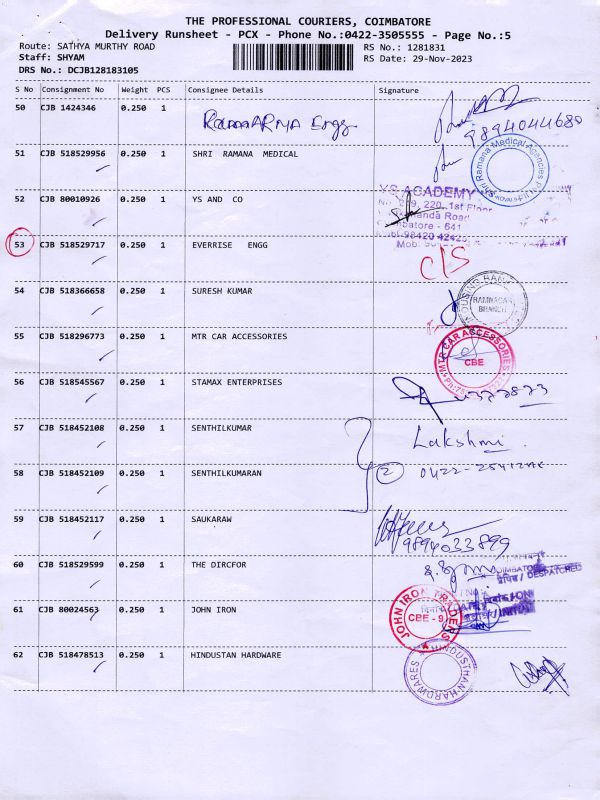 THE PROFESSIONAL COURIERS, COIMBATORE
Delivery Runsheet - PCX - Phone No.:0422-3505555 - Page No.:5
Route: SATHYA MURTHY ROAD RS No.: 1281831
Staff: SHYAM RS Date: 29-Nov-2023
DRS No.: DCJB128183105
S No Consignment No Weight PCS Consignee Details Signature
50 CJB 1424346 0.250 1 RamaARNA Engg
9894044680
51 CJB 518529956 0.250 1 SHRI RAMANA MEDICAL
Ramana Medical Agencies
52 CJB 80010926 0.250 1 YS AND CO
YS ACADEMY
220, 1st Floor
Road
641
98420 42425
Mob:
53 CJB 518529717 0.250 1 EVERRISE ENGG
C/S
54 CJB 518366658 0.250 1 SURESH KUMAR
RAMNAGAR
BRANCH
55 CJB 518296773 0.250 1 MTR CAR ACCESSORIES
MTR CAR ACCESSORIES
CBE
56 CJB 518545567 0.250 1 STAMAX ENTERPRISES
57 CJB 518452108 0.250 1 SENTHILKUMAR
Lakshmi
58 CJB 518452109 0.250 1 SENTHILKUMARAN
2
59 CJB 518452117 0.250 1 SAUKARAW
9894033899
60 CJB 518529599 0.250 1 THE DIRCFOR
DESPATCHED
61 CJB 80024563 0.250 1 JOHN IRON
JOHN IRON TRADERS
CBE - 9
62 CJB 518478513 0.250 1 HINDUSTAN HARDWARE
HINDUSTHAN HARDWARES